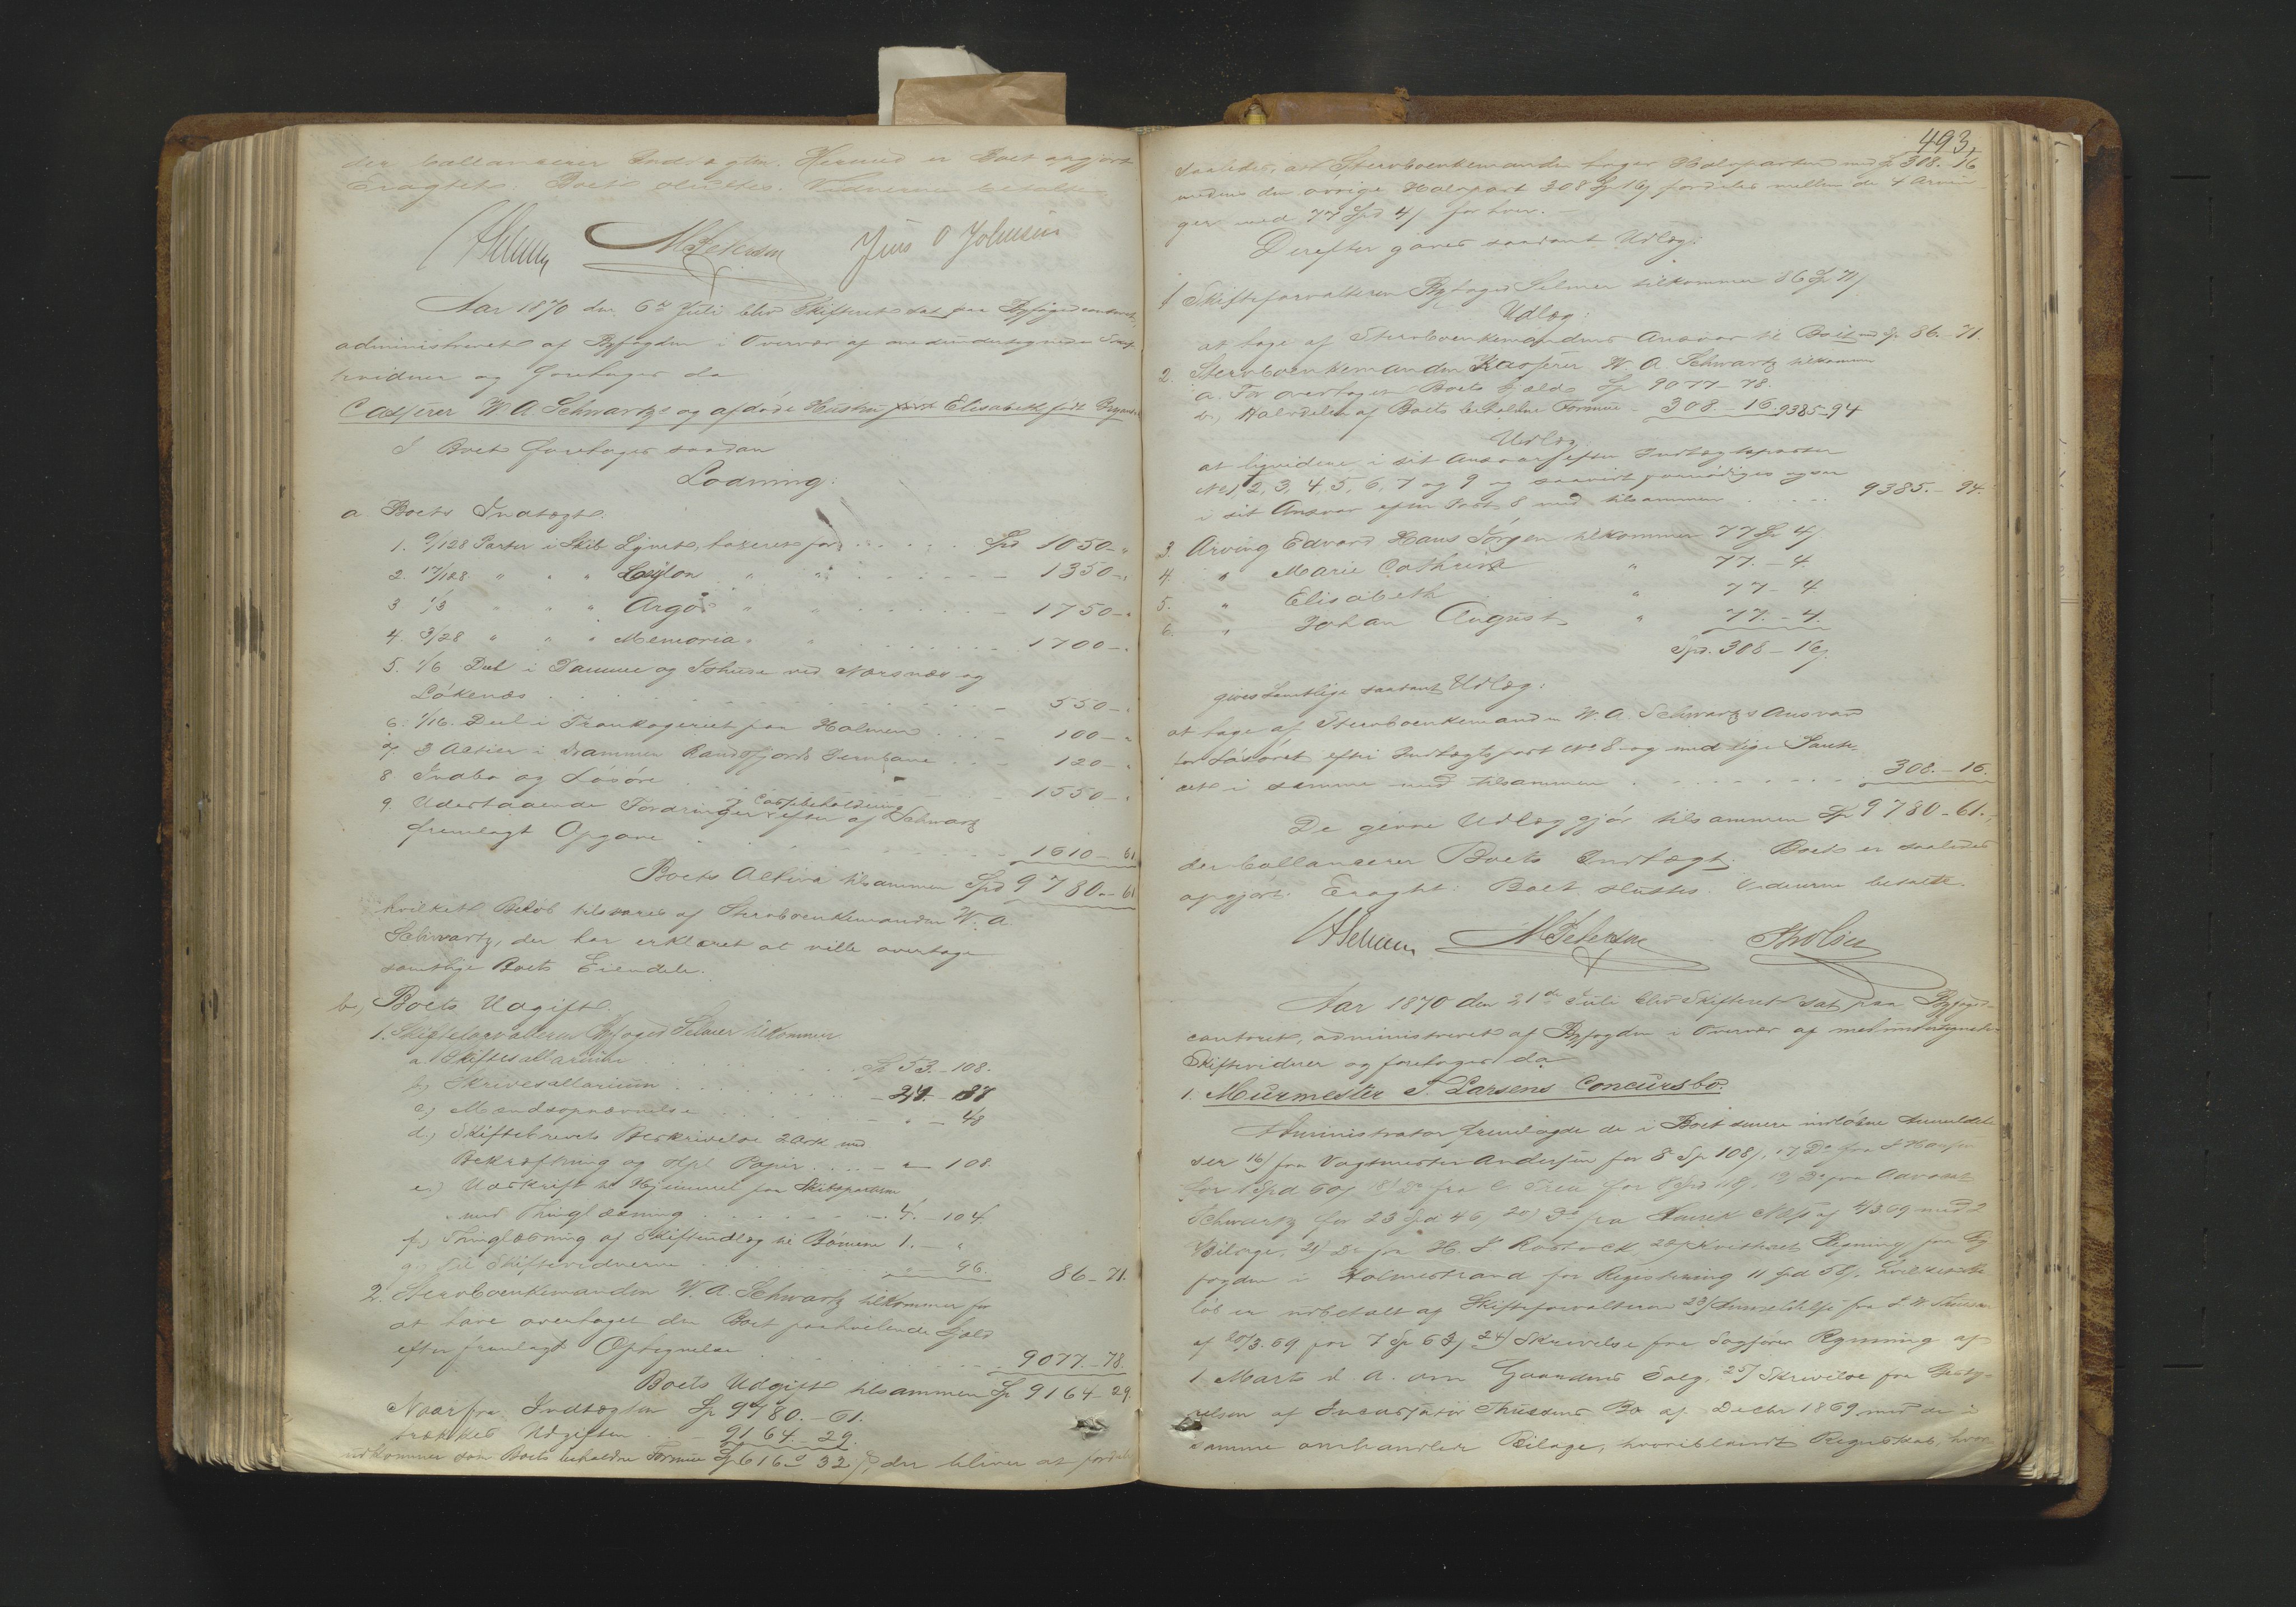 der ballancerer Indtægten. Hermed er Boet opgjort
Eragtet: Boet sluttes. Vidnerne betalte
Selmer M Petersen Jens O Johnsen
Aar 1870 den 6te Juli blev Skifteret sat paa Byfogedcontoret,
administreret af Byfogden i Overvær af medundertegnede Skifte
vidner og foretoges da
Casserer W. A. Schwartz og afdøde Hustru Elisabeth født
I Boet foretoges saadan
Lodning:
a Boets Indtægt.
1. 9/128 Parter i Skib Lynet, taxeret for Spd 1050 - "
2. 17/128 " " " Ceylon " " - 1350 - "
3 1/3 " " " Argo " " - 1750 - "
4. 3/28 " " " Memoria " " 1700 - "
5. 1/6 Deel i Damme og Ishuse ved Nærsnæs og
Løkenæs - 550 - "
6. 1/16 Deel i Trankogeriet paa Holmen - 100 - "
7. 3 Actier i Drammen Randsfjords Jernbane 120 - "
8 Indbo og Løsøre - 1550 - "
9. Udestaaende Fordringer og Cassebeholdning efter af Schwartz
fremlagt Opgave - 1610 - 61
Boets Activa tilsammen Spd 9780 - 61
hvilket Beløb tilsvares af Sterboenkemanden W. A.
Schwartz, der har erklæret at ville overtage
samtlige Boets Eiendele.
b, Boets Udgift.
1. Skifteforvalteren Byfoged Selmer tilkommer
a. Skiftesallarium Sp 53. - 108.
b, Skrivesallarium - 24. 87
c, Mændsopnævnelse - " - 48
d, Skiftebrevets Beskrivelse 2 Ark med
Bekræftning og stpl Papir - " - 108.
e, Udskrift til Hjemmel paa Skibsparterne
med Thinglæsning - 4. - 104.
f, Thinglæsning af Skifteudlæg til Børnene 1. - "
g, Til Skiftevidnerne " - 96. 86 - 71.
2. Sterboenkemanden W. A. Schwartz tilkommer for
at have overtaget den Boet paahvilende Gjæld
efter fremlagt Optegnelse 9077. - 78.
Boets Udgift tilsammen Sp 9164 - 29.
Naar fra Indtægten Sp 9780. - 61.
trækkes Udgiften - 9164. - 29.
udkommer som Boets beholdne Formue Sp 616 - 32 β, der bliver at fordele
493.
saaledes, at Sterboenkemanden tager Halvparten med Sp 308. 16
medens den øvrige Halvpart 308 Sp 16 β fordeles mellem de 4 Arvin-
ger med 77 Spd 4 β for hver. -
Derefter gjøres saadant Udlæg:
1 Skifteforvalteren Byfoged Selmer tilkommer 86 Sp 71 β
Udlæg:
at tage af Sterboenkemandens Ansvar til Boet med Sp 86. - 71.
2. Sterboenkemanden Kasserer W. A. Schwartz tilkommer
a. For overtagen Boets Gjæld Sp 9077 - 78.
b, Halvdelen af Boets beholdne Formue - 308 - 16. 9385 - 94
Udlæg:
at liqvidere i sit Ansvar efter Indtægtsposter
No 1, 2, 3, 4, 5, 6, 7 og 9 og saavidt fornødiges ogsaa
i sit Ansvar efter Post 8 med tilsammen 9385. - 94.
3. Arving Edvard Hans Jørgen tilkommer 77 Sp 4 β
4. " Marie Cathrine " 77. - 4.
5. " Elisabeth " 77 - 4
6. " Johan August " 77. - 4.
Spd. 308 - 16 β.
gives samtlige saadant Udlæg:
at tage af Sterboenkemanden W. A. Schwartz's Ansvar
for Løsøret efter Indtægtspost No 8 og med lige
ret i samme med tilsammen 308. - 16.
De givne Udlæg gjør tilsammen Sp 9780 - 61.,
der ballancerer Boets Indtægt. Boet er saaledes
opgjort. Eragtet: Boet sluttes. Vidnerne betalte.
Selmer M Petersen
Aar 1870 den 21de Juli blev Skifteret sat paa Byfoged-
contoret, administreret af Byfogden i Overvær af medundertegnede
Skiftevidner og foretoges da
1. Murmester S. Larsens Concursbo.
Administrator fremlagde de i Boet senere indløbne Anmeldel-
ser 16) fra Vagtmester Andersen for 8 Sp 108 β, 17) Do fra
for 1 Spd 60 β 18) Do fra for 19) Do fra Advocat
Schwartz for 23 Spd 46 β 20) Do fra af 4/3 69 med 2
Bilage, 21) Do fra H. J. 22) Qvitteret Regning fra By
fogden i Holmestrand for Registrering 11 Spd hvilket Be
løb er udbetalt af Skifteforvalteren 23) Anmeldelse fra
af 20/3. 69 for 7 Sp 63 β 24) Skrivelse fra Sagfører Rynning af
1 Marts d. A. om Gaardens Salg, 25) Skrivelse fra Besty-
relsen af Bo af Decbr 1869 med de i
samme omhandlede Bilage, hvoriblandt Regnskab, hvor